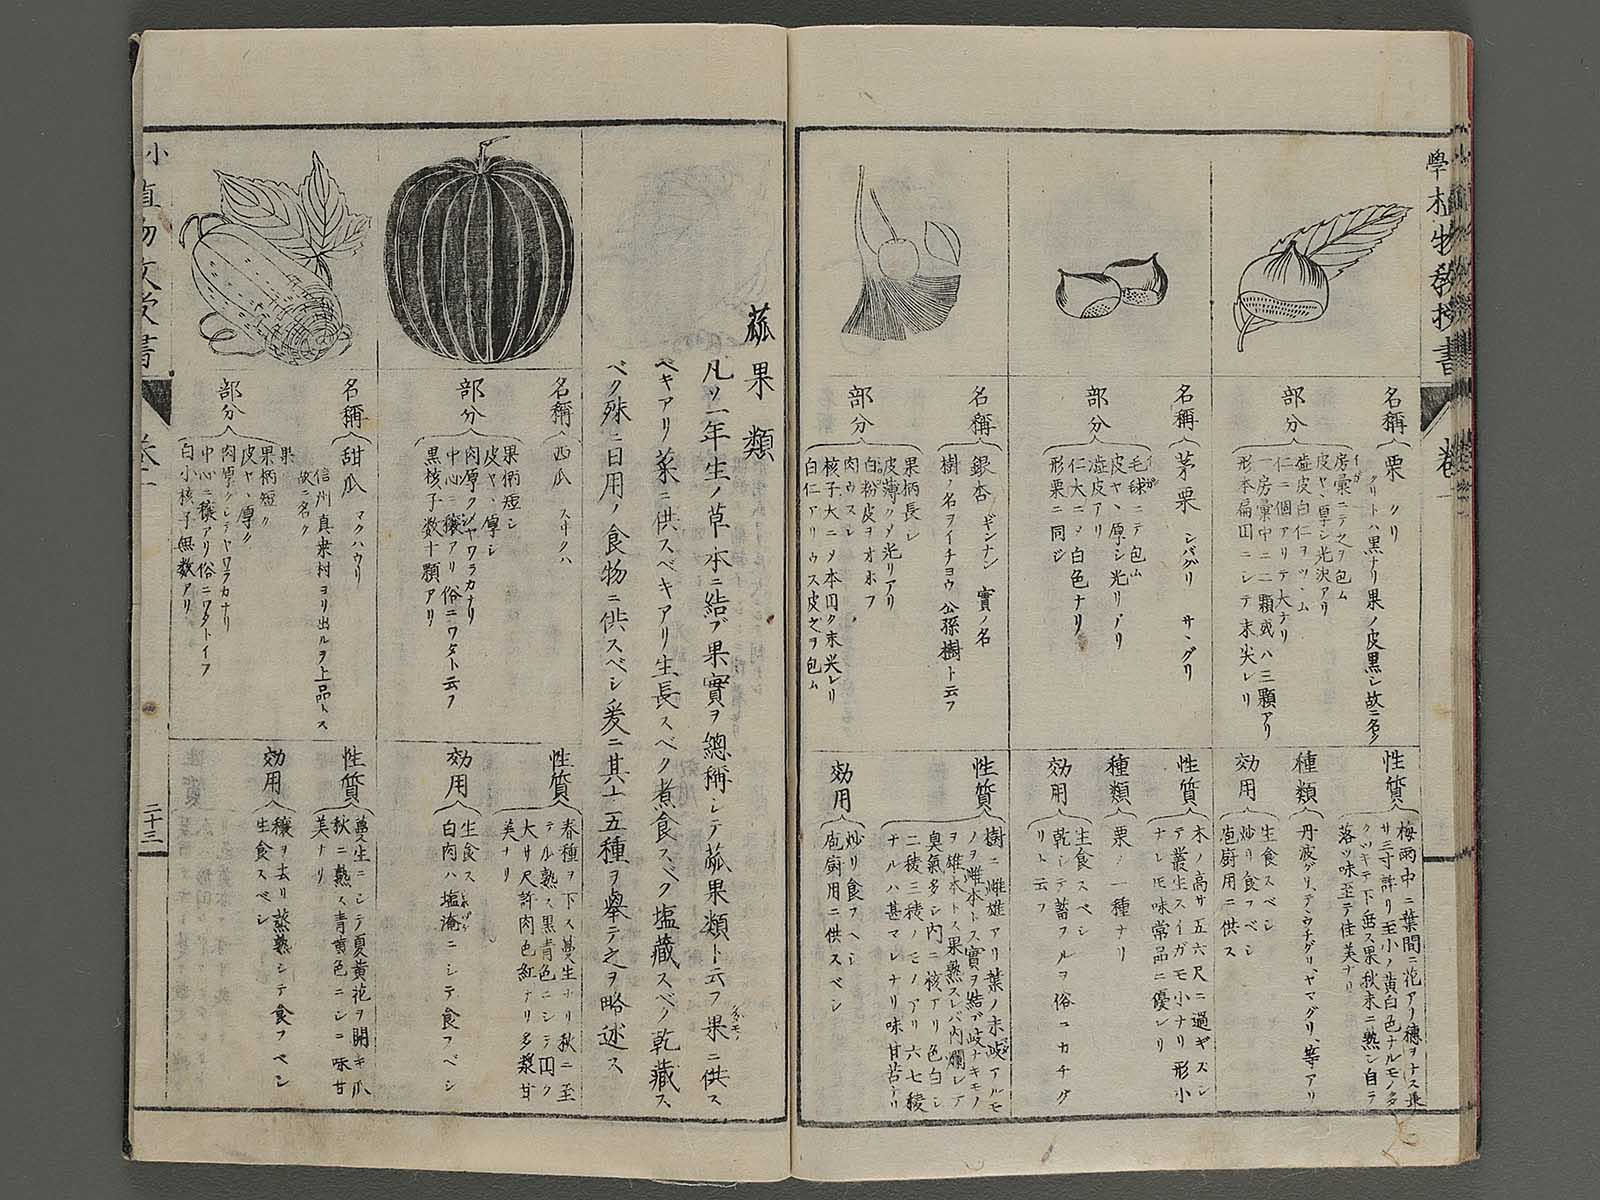 學植物教授書
卷一
名稱
栗 クリ
クリトハ黒ナリ果ノ皮黒シ故ニ名ク
部分
房彙ニテ之ヲ包ム
皮ヤヽ厚シ光沢アリ
澁皮白仁ヲツヽム
仁ニ個アリテ大ナリ
一房彙中ニ二顆或ハ三顆アリ
形本扁円ニシテ末尖レリ
性質
梅雨中ニ葉間ニ花アリ穂ヲナス長
サ三寸許リ至小ノ黄白色ナルモノ多
クツキテ下岳ス果秋末ニ熟シ自ラ
落ツ味至テ佳美ナリ
種類
丹波グリ、テウチグリ、ヤマグリ、等アリ
効用
生食スベシ
炒リ食フベシ
庖廚用ニ供ス
名稱
茅栗 シバグリ サヽグリ
部分
毛毬ニテ包ム
皮ヤヽ厚シ光リアリ
澁皮アリ
仁大ニシテ白色ナリ
形栗ニ同ジ
性質
木ノ高サ五六尺ニ過ギズシ
テ叢生スイガモ小ナリ形小
ナレ𪜈味常品ニ優レリ
種類
栗ノ一種ナリ
効用
生食スベシ
乾シテ蓄フルヲ俗ニカチグ
リト云フ
名稱
銀杏 ギンナン 實ノ名
樹ノ名ヲイチヨウ 公孫樹ト云フ
部分
果柄長シ
皮薄クシテ光リアリ
白粉皮ヲオホフ
肉ウスシ
核子大ニシテ本円ク末尖レリ
白仁アリウス皮之ヲ包ム
性質
樹ニ雌雄アリ葉ノ末岐アルモ
ノヲ雌本トス實ヲ結ブ岐ナキモノ
ヲ雄本トス果熟スレバ肉爛レテ
臭氣多シ内ニ核アリ色白シ
二稜三稜ノモノアリ六七稜
ナルハ甚マレナリ味甘苦ナリ
効用
炒リ食フヘシ
庖廚用ニ供スベシ
蓏果類
凡ソ一年生ノ草本ニ結ブ果實ヲ總稱シテ蓏果類ト云フ果ニ供ス
ベキアリ菜ニ供スベキアリ生長スベク煮食スベク塩藏スベク乾藏ス
ベク殊ニ日用ノ食物ニ供スベシ爰ニ其十五種ヲ舉テ之ヲ略述ス
名稱
西瓜 スヰクハ
部分
果柄短シ
皮ヤヽ厚シ
肉厚クシテヤワラカナリ
中心ニ穣アリ俗ニワタト云フ
黒核子数十顆アリ
性質
春種ヲ下ス蔓生ナリ秋ニ至
テル熟ス黒青色ニシテ円ク
大サ尺許肉色紅ナリ多漿甘
美ナリ
効用
生食ス
白肉ハ塩淹ニシテ食フベシ
名稱
甜瓜 マクハウリ
信州真桒村ヨリ出ルヲ上品トス
故ニ名ク
部分
果
果柄短ク
皮ヤヽ厚ク
肉厚クシテヤワラカナリ
中心ニ穣アリ俗ニワタトイフ
白小核子無数アリ
性質
蔓生ニシテ夏黄花ヲ開キ瓜
秋ニ熟ス青黄色ニシテ味甘
美ナリ
効用
穣ヲ去リ蒸熟シテ食フベシ
生食スベシ
小植物教授書
卷一
二十三